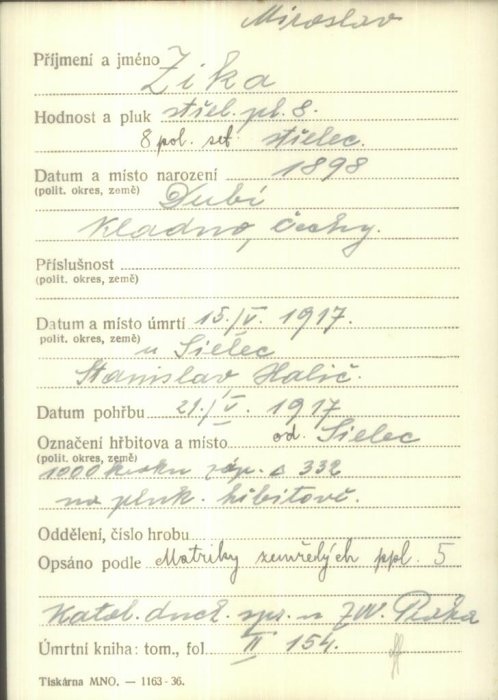 Miroslav
Příjmení a jméno Zika
Hodnost a pluk střel. pl. 8.
8 pol. set. střelec.
Datum a místo narození 1898
(polit. okres, země) Dubí
Kladno, Čechy.
Příslušnost
(polit. okres, země)
Datum a místo úmrtí 15./V. 1917.
(polit. okres, země) u Sielec
Stanislav Halič.
Datum pohřbu 21./V. 1917
Označení hřbitova a místo od Sielec
(polit. okres, země)
1000 kroků záp. Δ 332
na pluk. hřbitově.
Oddělení, číslo hrobu
Opsáno podle Matriky zemřelých ppl. 5
Katol. duch. spr. u ZVV. Praha
Úmrtní kniha: tom., fol. II 154.
Tiskárna MNO. — 1163-36.